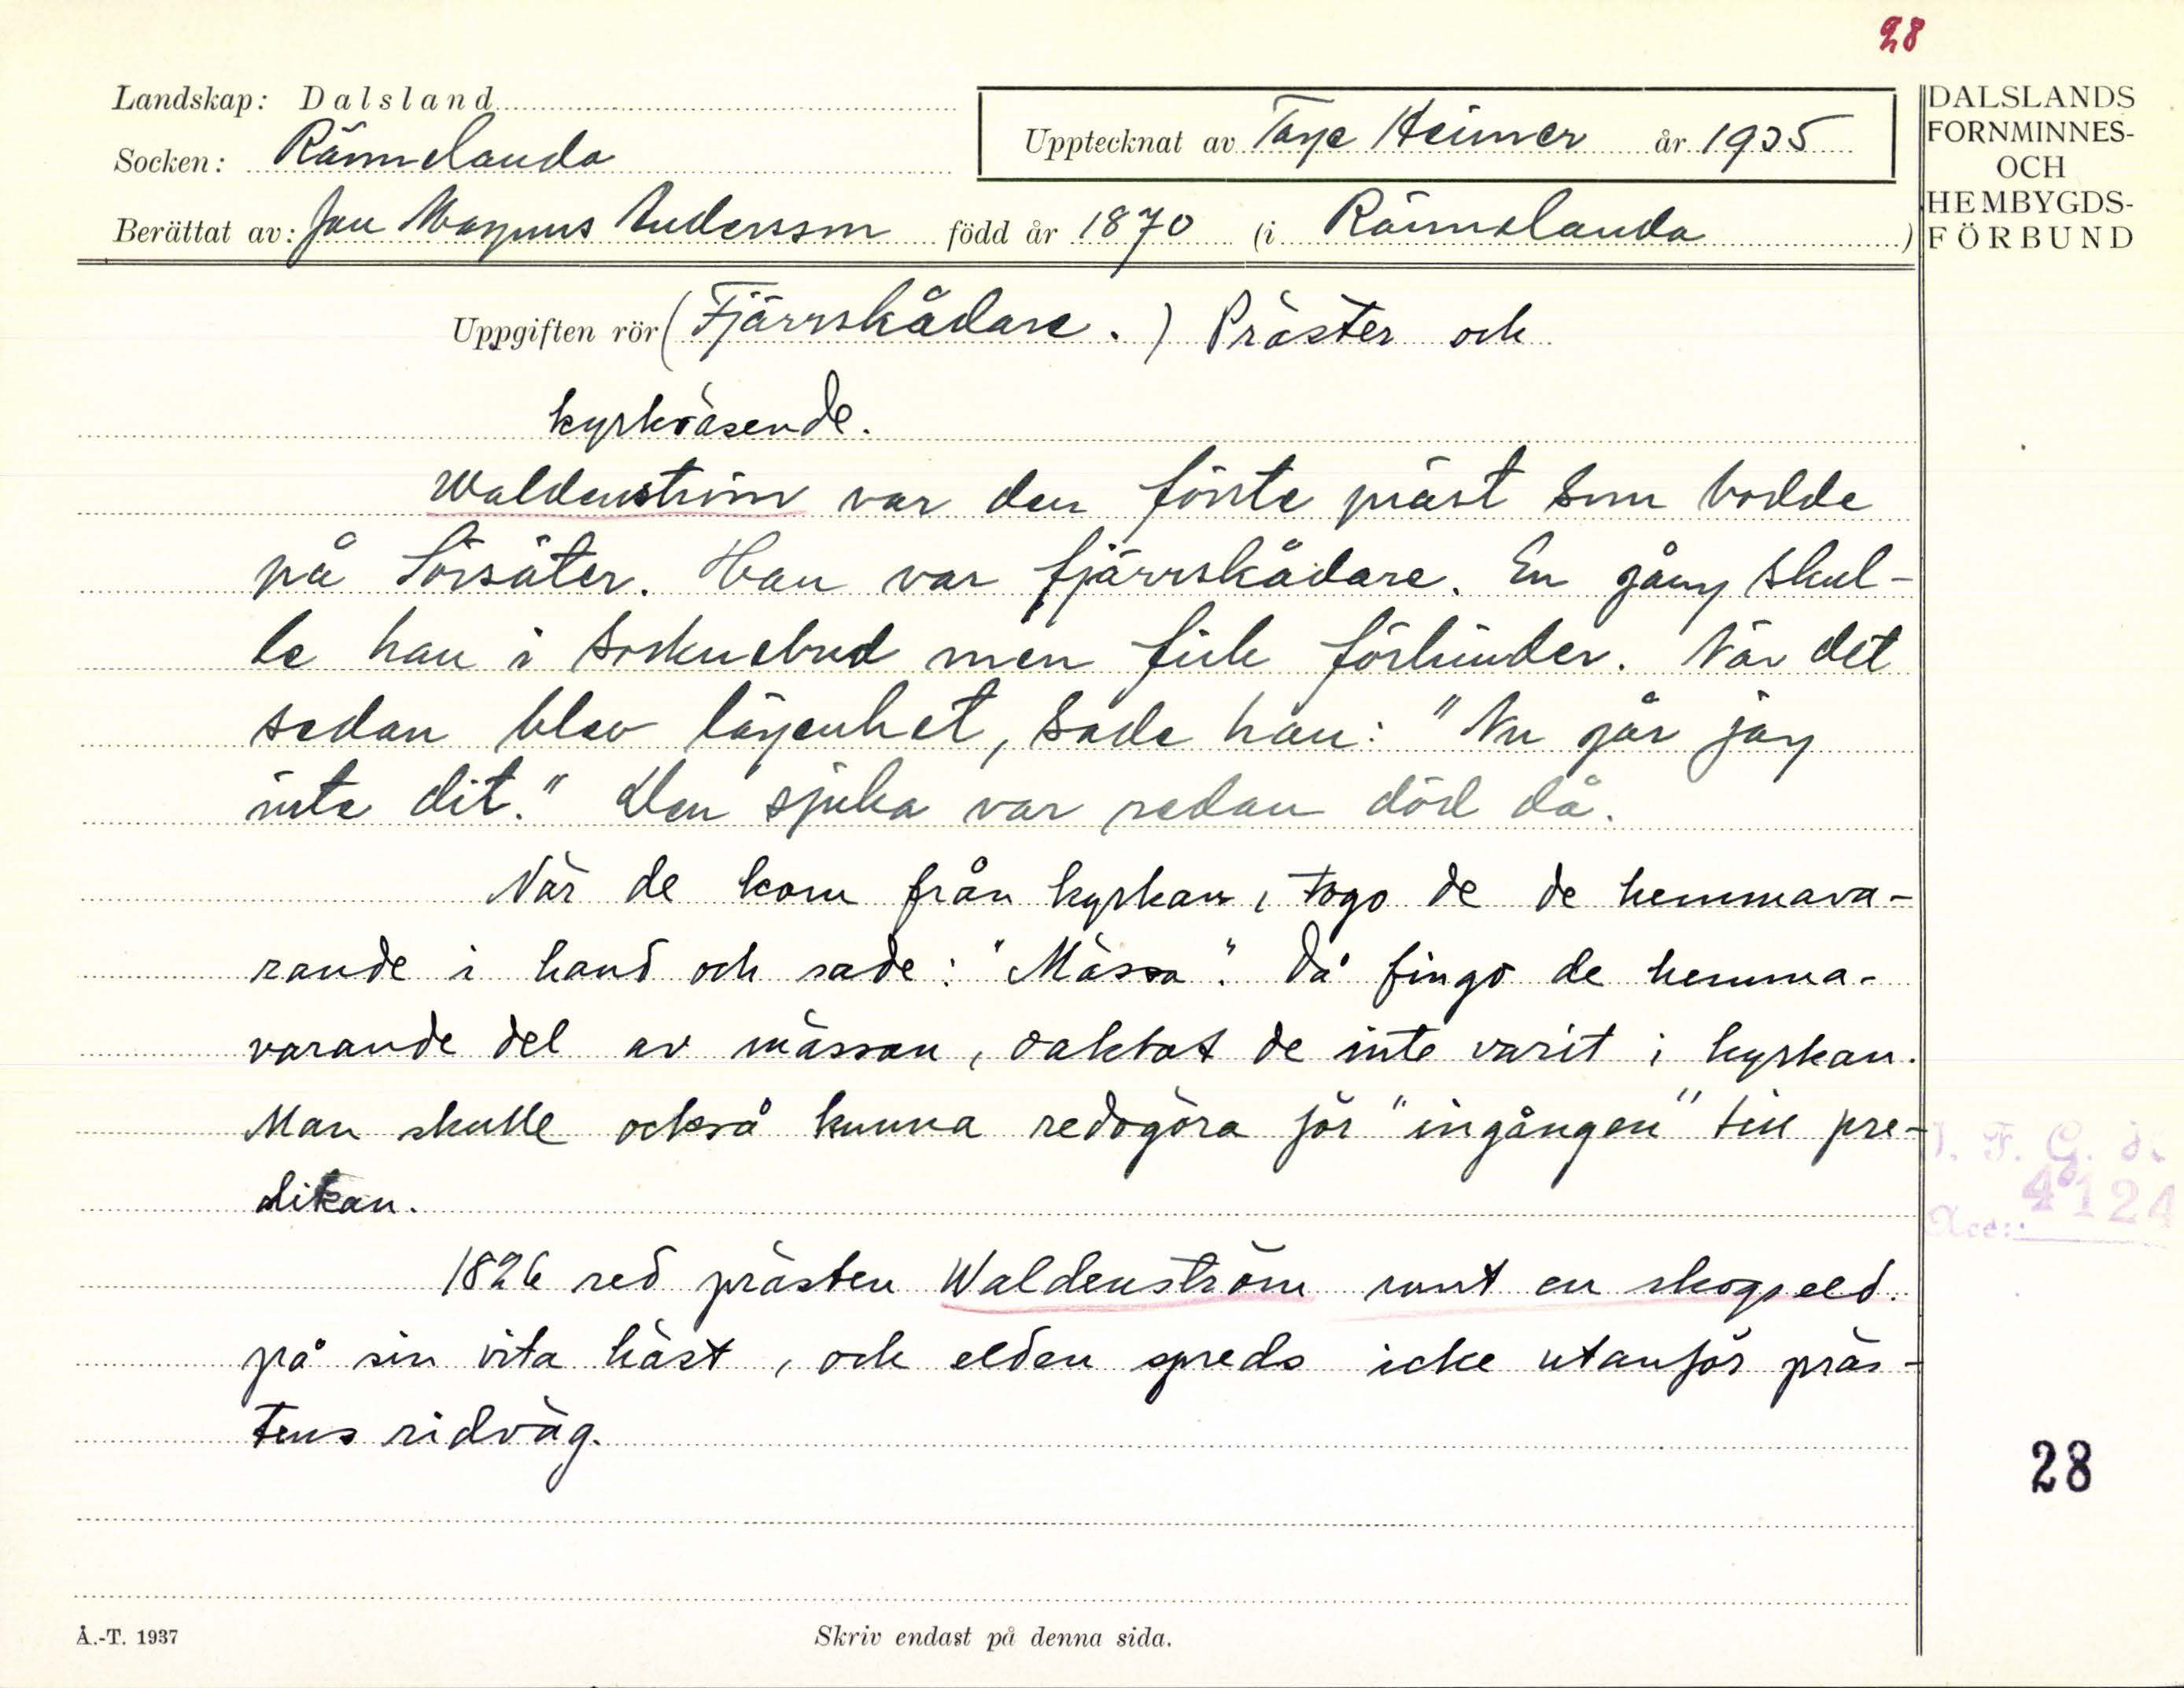 28
Landskap: Dalsland
Socken: Rännelanda
Upptecknat av Tage Heimer år 1935
Berättat av: Jan Magnus Andersson född år 1870 (i Rännelanda)
DALSLANDS
FORNMINNES-
OCH
HEMBYGDS-
FÖRBUND
Uppgiften rör (Fjärrskådare.) Präster och
kyrkväsende.
Waldenström var den förste präst som bodde
på Sörsäter. Han var fjärrskådare. En gång skul-
le han i sockenbud men fick förhinder. När det
sedan blev lägenhet, sade han: "Nu går jag
inte dit." Den sjuka var redan död då.
När de kom från kyrkan, togo de de hemmava-
rande i hand och sade: "Mässa". Då fingo de hemma-
varande del av mässan, oaktat de inte varit i kyrkan.
Man skulle också kunna redogöra för "ingången" till pre-
dikan.
1826 red prästen Waldenström runt en skogseld.
på sin vita häst, och elden spreds icke utanför präs-
tens ridväg.
4124
Acc:
28
Å.-T. 1937
Skriv endast på denna sida.